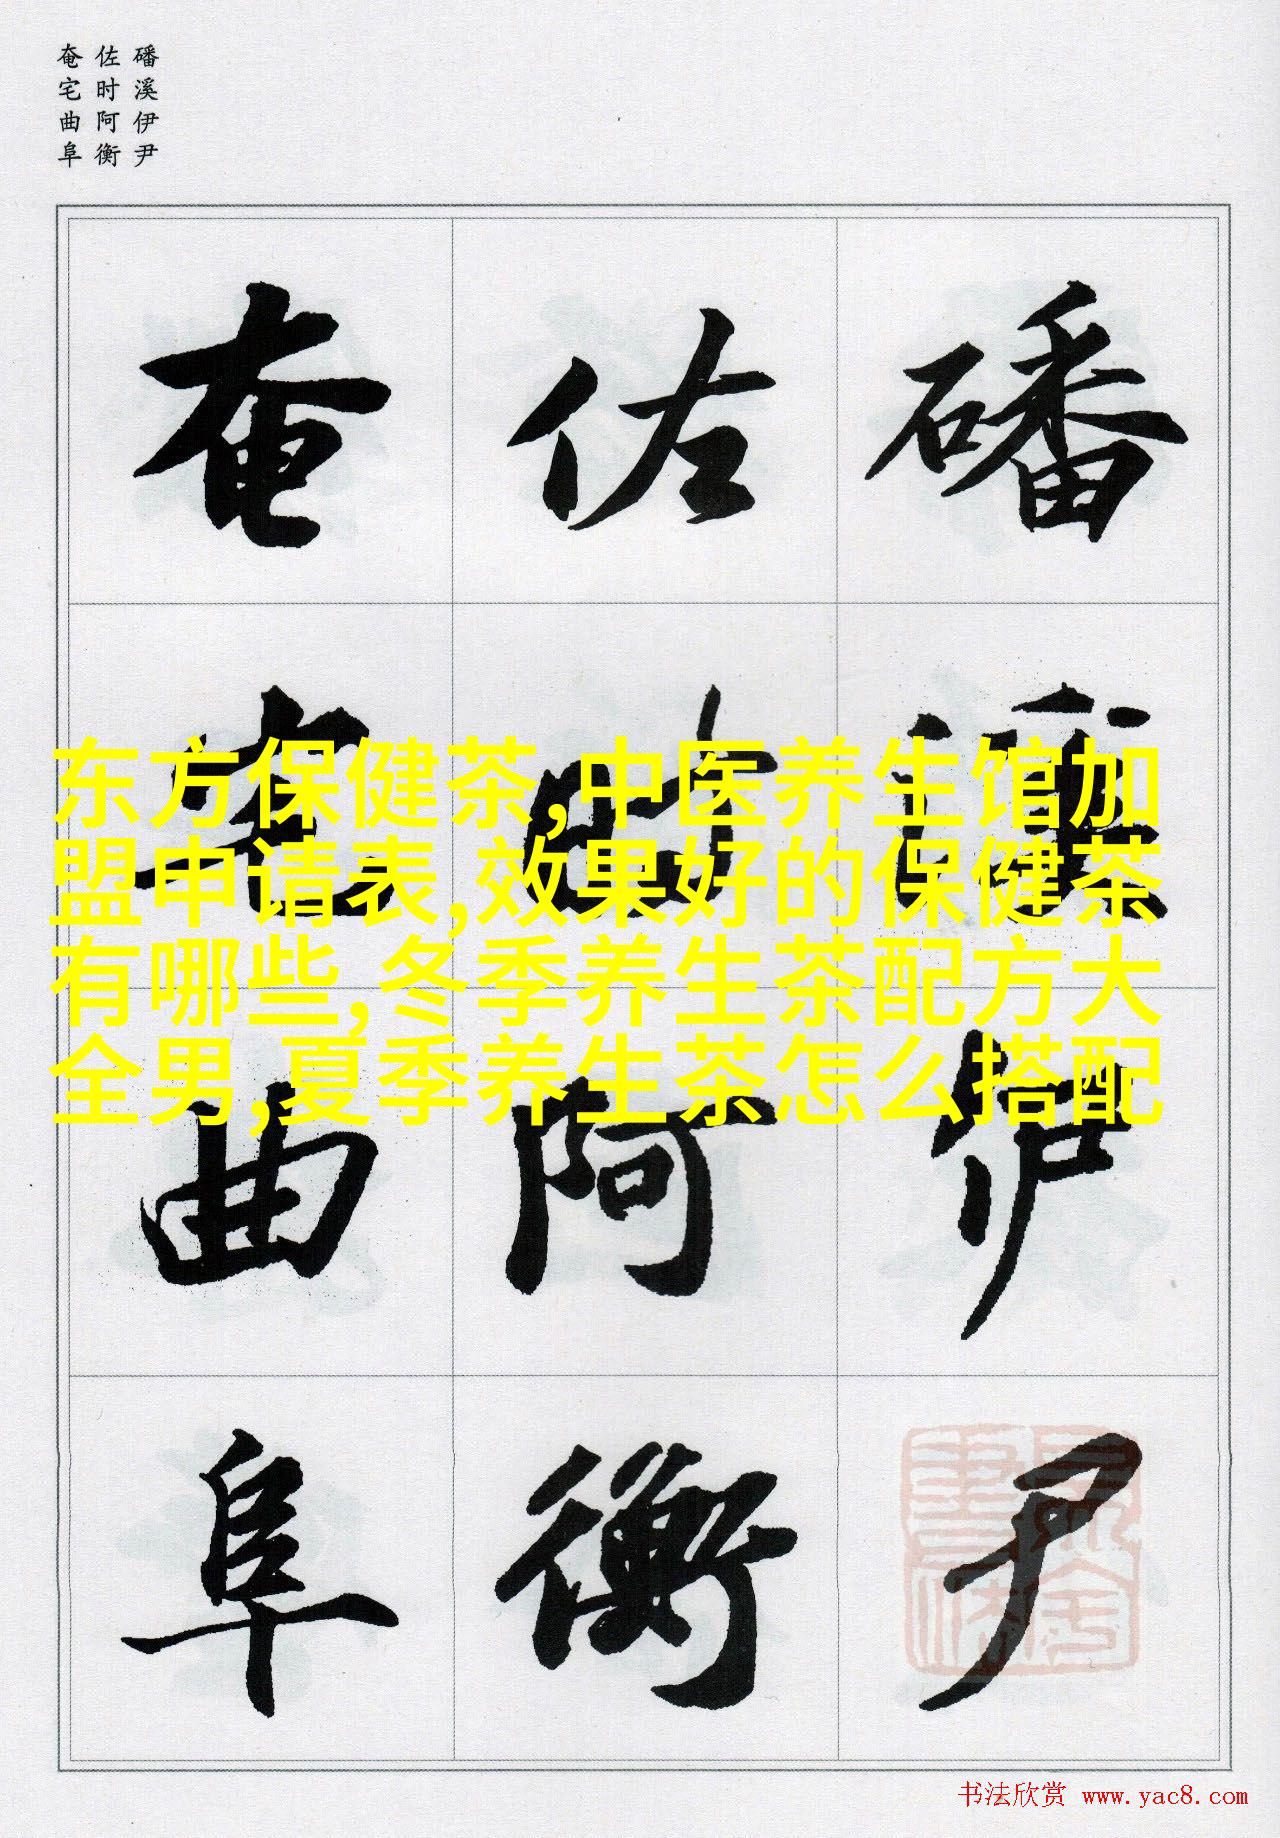 磻溪伊尹
佐时阿衡
奄宅曲阜
磻溪伊尹
佐时阿衡
奄宅曲阜
东方保健茶,中医养生馆加
盟申请表,效果好的保健茶
有哪些,冬季养生茶配方大
全男,夏季养生茶怎么搭配
书法欣赏 www.yac8.com